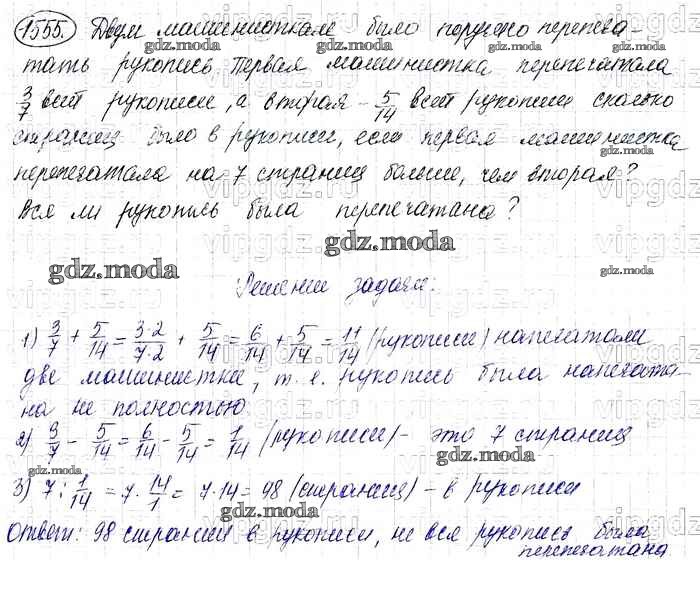 1555. Двум машинисткам было поручено перепеча-
тать рукопись Первая машинистка перепечатала
3/7 всей рукописи, а вторая - 5/14 всей рукописи сколько
страниц было в рукописи, если первая машинистка
перепечатала на 7 страниц больше, чем вторая?
Вся ли рукопись была перепечатана?
gdz.moda
Решение задачи:
1) 3/7 + 5/14 = 3·2/7·2 + 5/14 = 6/14 + 5/14 = 11/14 (рукописи) напечатали
две машинистки, т. е. рукопись была напечата-
на не полностью
2) 3/7 - 5/14 = 6/14 - 5/14 = 1/14 (рукописи) - это 7 страниц
3) 7 : 1/14 = 7 · 14/1 = 7·14 = 98 (страниц) - в рукописи
Ответ: 98 страниц в рукописи, не вся рукопись была
перепечатана